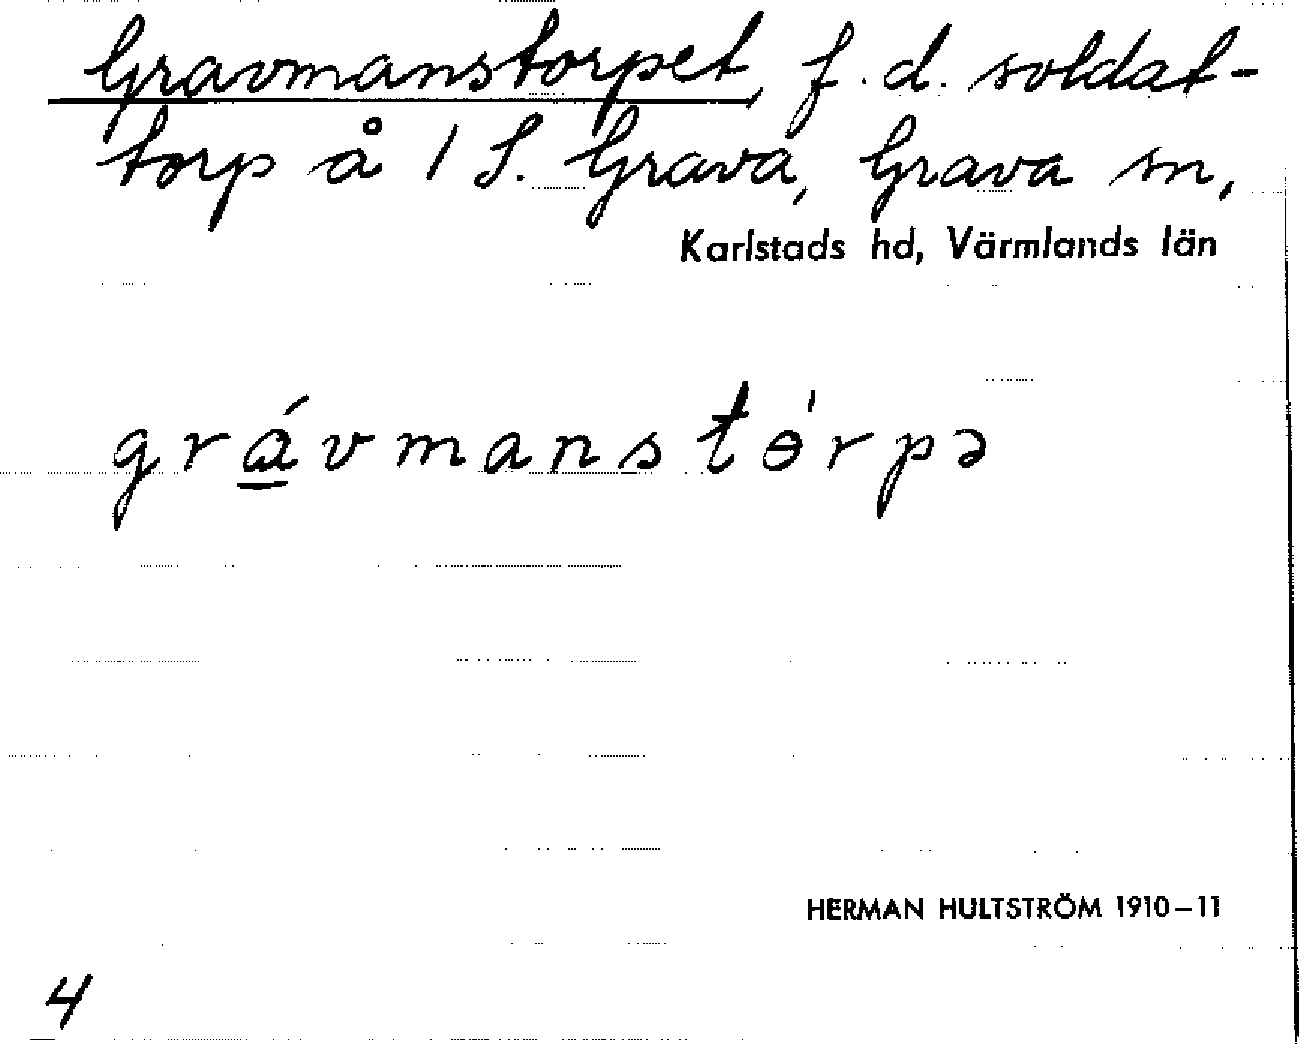 Gravmanstorpet, f.d. soldat-
torp å 1 S. Grava, Grava sn,
Karlstads hd, Värmlands län
grávmanstɵ́rpə
HERMAN HULTSTRÖM 1910–11
4